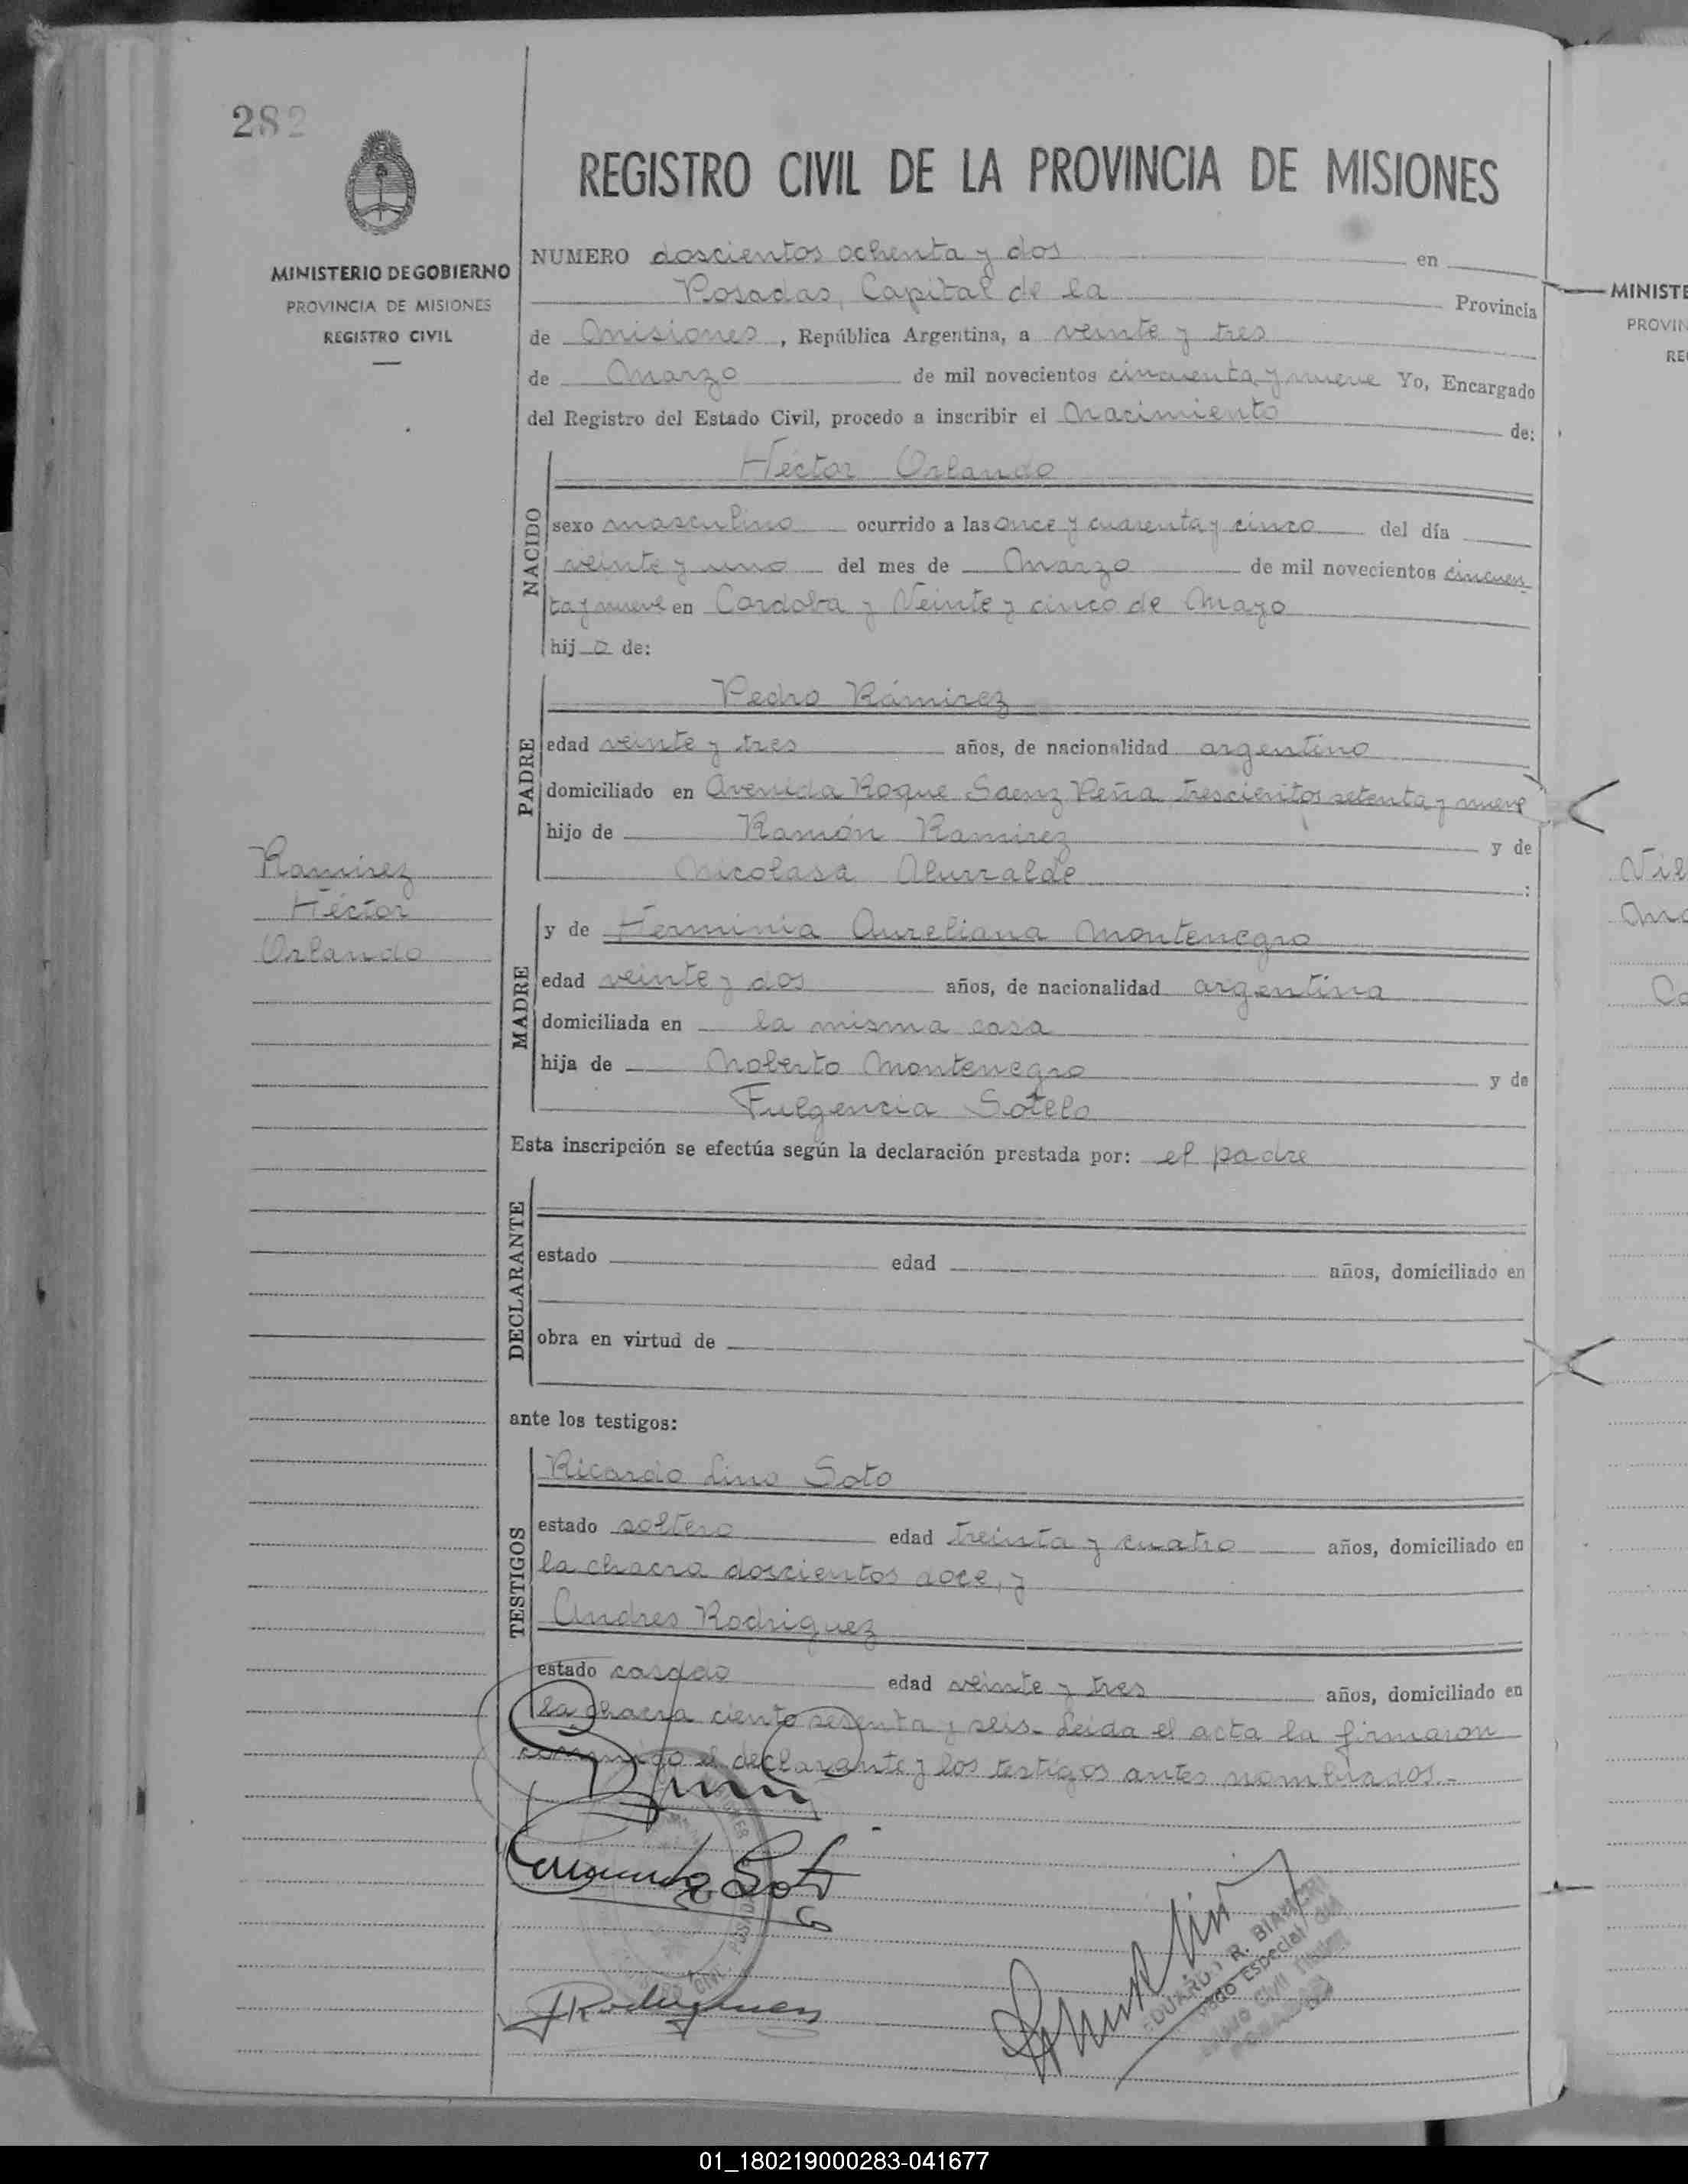 282
REGISTRO CIVIL DE LA PROVINCIA DE MISIONES
MINISTERIO DE GOBIERNO
PROVINCIA DE MISIONES
REGISTRO CIVIL
NUMERO doscientos ochenta y dos en
Posadas, Capital de la Provincia
de Misiones, República Argentina, a veinte y tres
de Marzo de mil novecientos cincuenta y nueve Yo, Encargado
del Registro del Estado Civil, procedo a inscribir el Nacimiento de:
NACIDO
Héctor Orlando
sexo masculino ocurrido a las once y cuarenta y cinco del día
veinte y uno del mes de Marzo de mil novecientos cincuen
ta y nueve en Cordoba y Veinte y cinco de Mayo
hij o de:
PADRE
Pedro Rámirez
edad veinte y tres años, de nacionalidad argentino
domiciliado en Avenida Roque Saenz Peña trescientos setenta y nueve
hijo de Ramón Ramirez y de
Nicolasa Alurralde :
Ramirez
Héctor
Orlando
MADRE
y de Herminia Aureliana Montenegro
edad veinte y dos años, de nacionalidad argentina
domiciliada en la misma casa
hija de Noberto Montenegro y de
Fulgencia Sotelo
Esta inscripción se efectúa según la declaración prestada por: el padre
DECLARANTE
estado edad años, domiciliado en
obra en virtud de
ante los testigos:
TESTIGOS
Ricardo Lino Soto
estado soltero edad treinta y cuatro años, domiciliado en
la chacra doscientos doce, y
Andres Rodriguez
estado casado edad veinte y tres años, domiciliado en
la chacra ciento sesenta y seis. Leida el acta la firmaron
conmigo el declarante y los testigos antes nombrados.-
Soto
Rodriguez
EDUARDO R.
ESPECIAL
CIVIL
POSADAS
MINISTE
PROVIN
RE
01_180219000283-041677